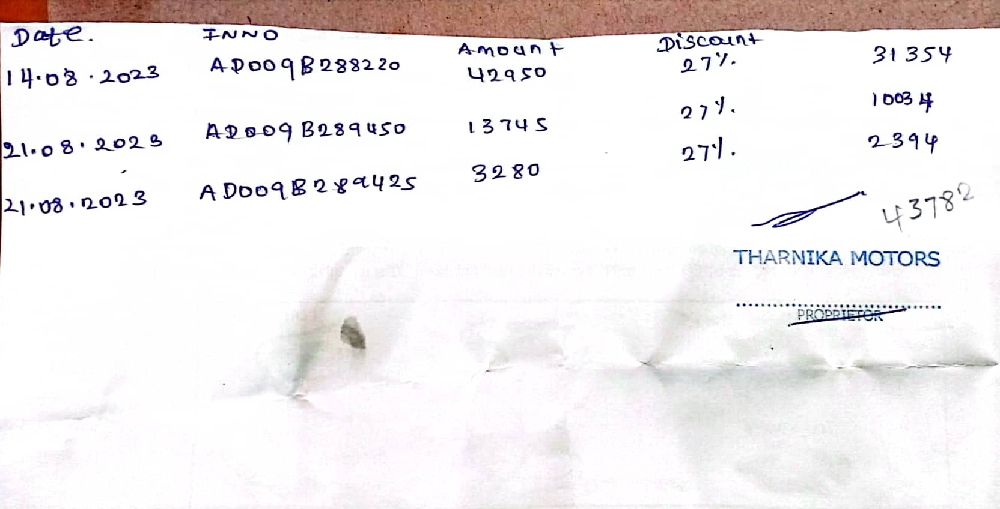 Date. INNO Amount Discount
14.08.2023 AD009B288220 42950 27%. 31354
21.08.2023 AD009B289450 13745 27%. 10034
21.08.2023 AD009B289425 3280 27%. 2394
43782
THARNIKA MOTORS
PROPRIETOR